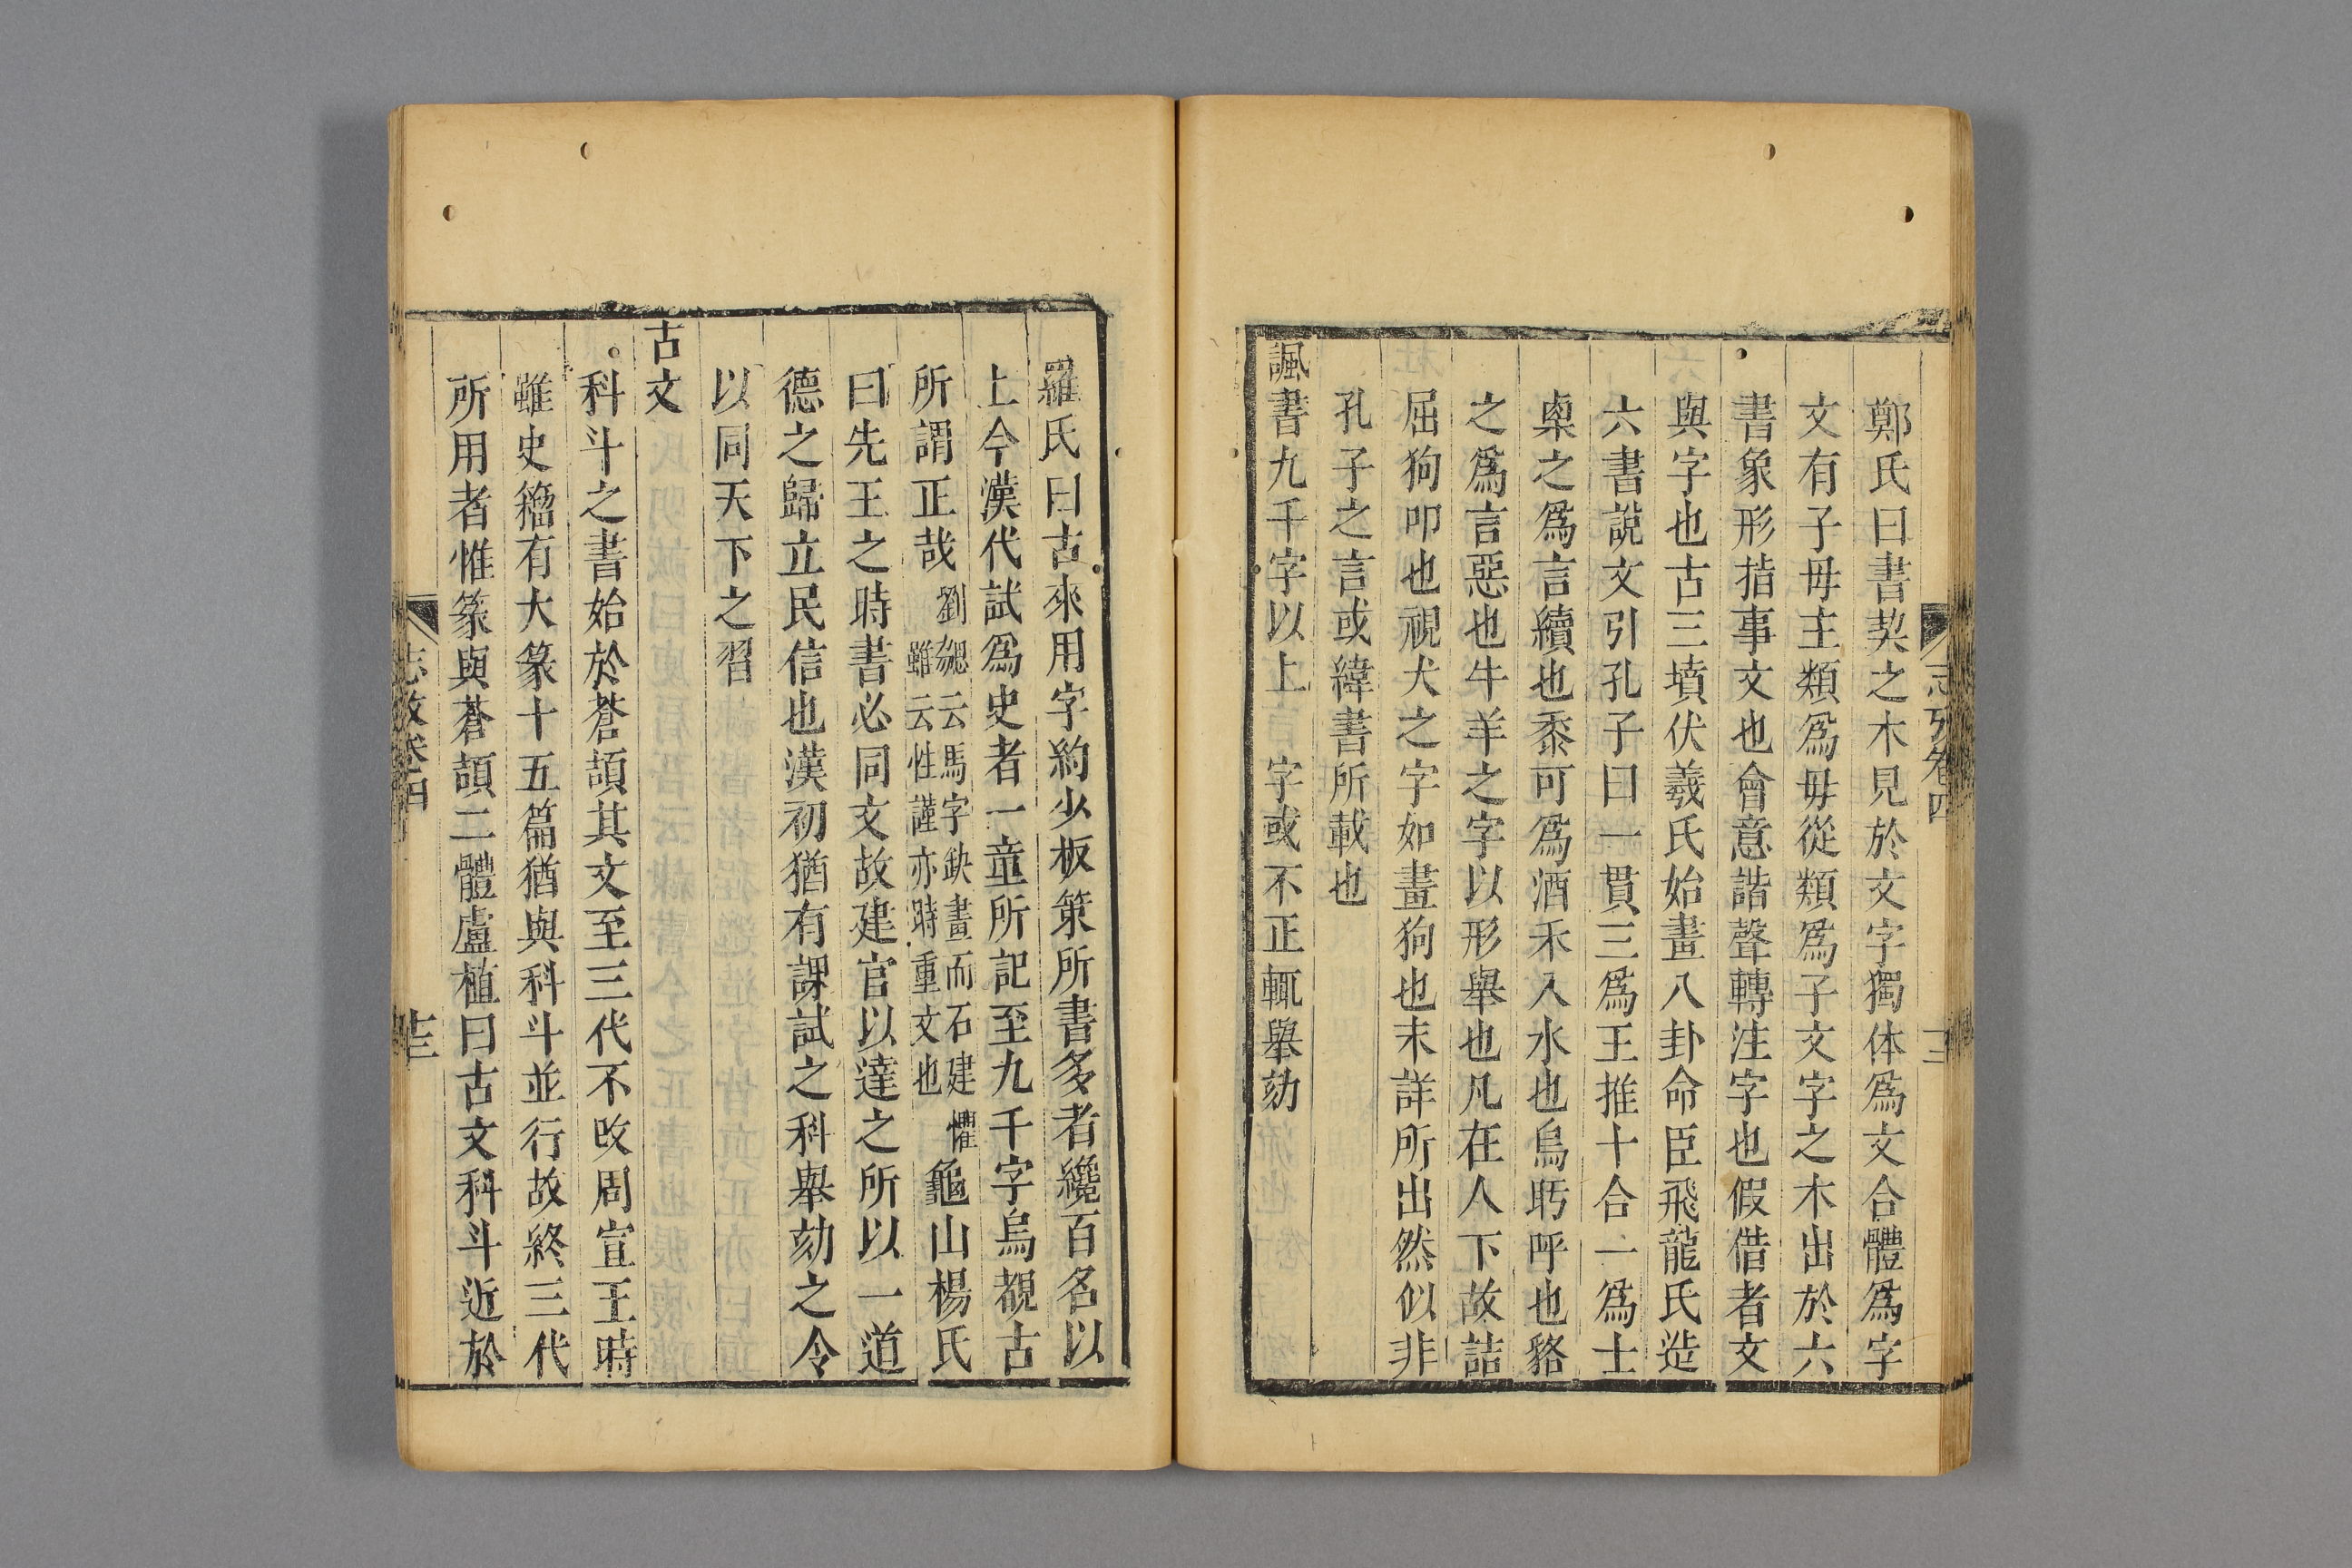 鄭氏曰書契之木見於文字獨体為文合體為字
文有子毋主類為毋從類為子文字之木出於六
書象形指事文也會意諧聲轉注字也假借者文
與字也古三墳伏羲氏始畫八卦命臣飛龍氏造
六書說文引孔子曰一貫三為王推十合一為士
㮚之為言續也黍可為酒禾入水也烏𥄂呼也貉
之為言惡也牛羊之字以形舉也凡在人下故詰
屈狗叩也視犬之字如畫狗也末詳所出然似非
孔子之言或緯書所載也
諷書九千字以上 字或不正輒舉劾
羅氏曰古來用字約少板策所書多者纔百名以
上今漢代試為史者一童所記至九千字烏覩古
所謂正哉劉勰云馬字缺畫而石建懼雖云性謹亦時重文也龜山楊氏
曰先王之時書必同文故建官以達之所以一道
德之歸立民信也漢初猶有課試之科舉劾之令
以同天下之習
古文
科斗之書始於蒼頡其文至三代不改周宣王時
雖史籀有大篆十五篇猶與科斗並行故終三代
所用者惟篆與蒼頡二體盧植曰古文科斗近於
志攷卷四